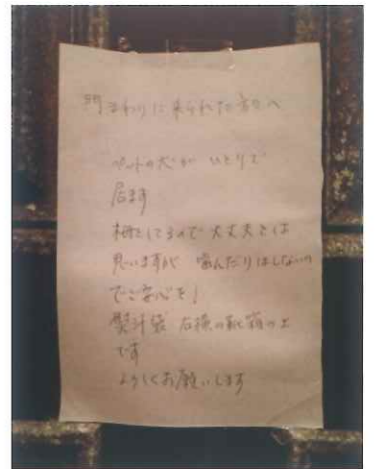 門まわりに来られた方々へ
ペットの犬が ひとりで
居ます
柵をしてるので 大丈夫とは
思いますが 噛んだりはしないの
でご安心を!
熨斗袋 右横の靴箱の上
です
よろしくお願いします